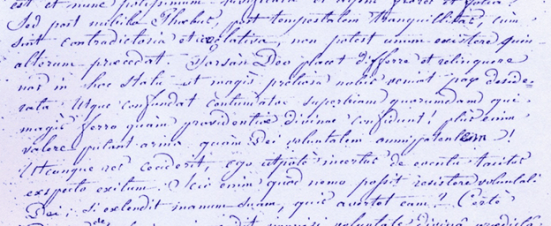 est et nunc
Sed post nubila Phoebus, post tempestatem tranquillitas, cum
sint contradictoria et relativa, non potest unum existere quin
alterum praecedat. Forsan Deo placet differre et relinquere
nos in hoc statu ut magis pretiosa nobis veniat pax deside-
rata utque confundat continuatae superbiam quorumdam qui
magis ferro quam providentiae divinae confidunt! plus enim
valere putant arma quam Dei voluntatem omnipotentem!
Utcunque res ceciderit, ego utpote incertus de eventu tacitus
exspecto exitum. Scio enim quod nemo possit resistere voluntati
Dei; si extendit manum suam, quis avertet eam? Certe
voluntate divina